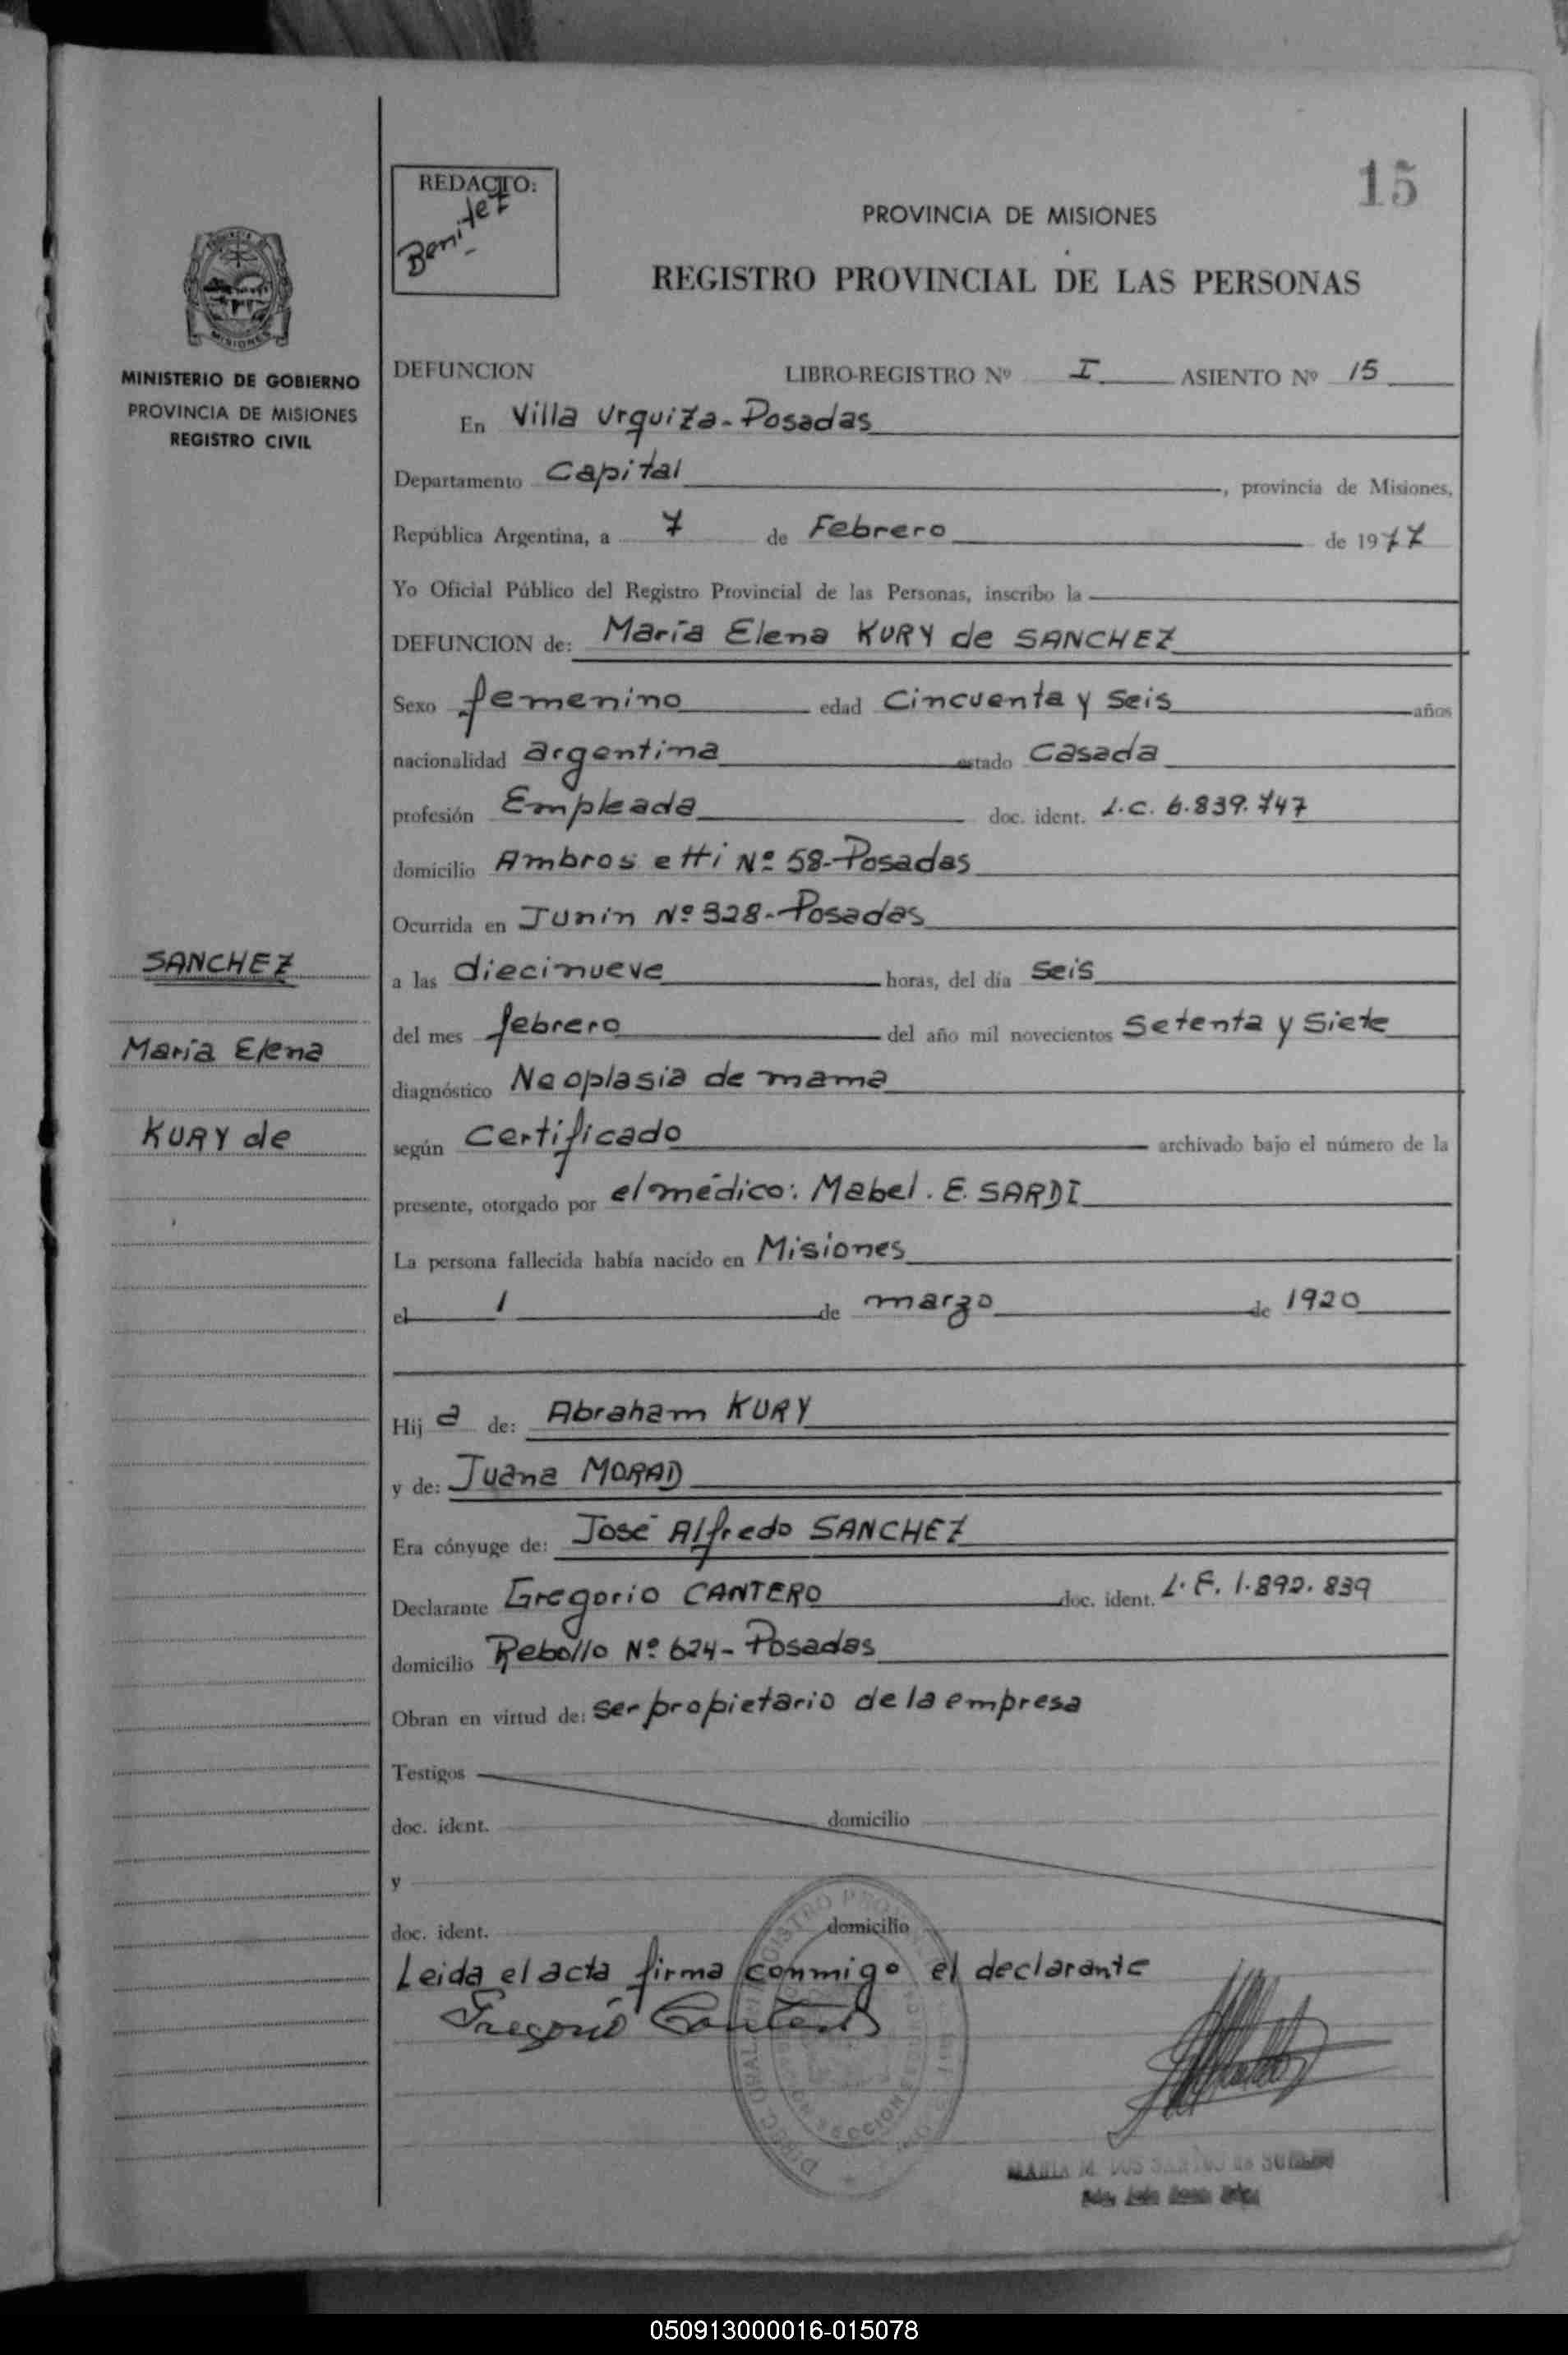 15
REDACTO:
Benitez
PROVINCIA DE MISIONES
REGISTRO PROVINCIAL DE LAS PERSONAS
MISIONES
MINISTERIO DE GOBIERNO
PROVINCIA DE MISIONES
REGISTRO CIVIL
SANCHEZ
María Elena
KURY de
DEFUNCION LIBRO-REGISTRO Nº I ASIENTO Nº 15
En Villa Urquiza-Posadas
Departamento Capital, provincia de Misiones,
República Argentina, a 7 de Febrero de 1977
Yo Oficial Público del Registro Provincial de las Personas, inscribo la
DEFUNCION de: María Elena KURY de SANCHEZ
Sexo femenino edad Cincuenta y Seis años
nacionalidad argentina estado Casada
profesión Empleada doc. ident. L.C. 6.839.747
domicilio Ambrosetti Nº 58-Posadas
Ocurrida en Junín Nº 328-Posadas
a las diecinueve horas, del día Seis
del mes febrero del año mil novecientos Setenta y Siete
diagnóstico Neoplasia de mama
según Certificado archivado bajo el número de la
presente, otorgado por el médico: Mabel. E. SARDI
La persona fallecida había nacido en Misiones
el 1 de marzo de 1920
Hija de: Abraham KURY
y de: Juana MORAD
Era cónyuge de: José Alfredo SANCHEZ
Declarante Gregorio CANTERO doc. ident. L.E. 1.892.839
domicilio Rebollo Nº 624-Posadas
Obran en virtud de: Ser propietario de la empresa
Testigos
doc. ident. domicilio
y
doc. ident. domicilio
Leida el acta firma conmigo el declarante
Gregorio Cantero
MARIA M. DOS SANTOS de
050913000016-015078